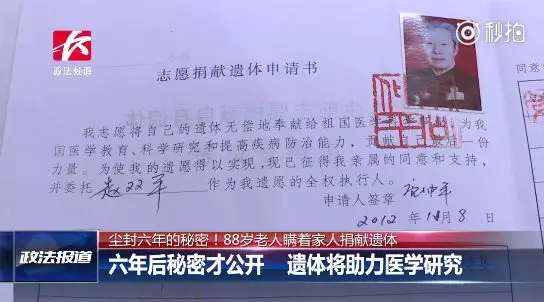 政法频道
秒拍
志愿捐献遗体申请书
我志愿将自己的遗体无偿地奉献给祖国医学
为我
国医学教育、科学研究和提高疾病防治能力，贡献自己最后一份
力量。为使我的遗愿得以实现，现已征得我亲属的同意和支持，
并委托 赵双军 作为我遗愿的全权执行人。
申请人签章
2012 年 11月 8 日
同意
尘封六年的秘密！88岁老人瞒着家人捐献遗体
政法报道
六年后秘密才公开 遗体将助力医学研究